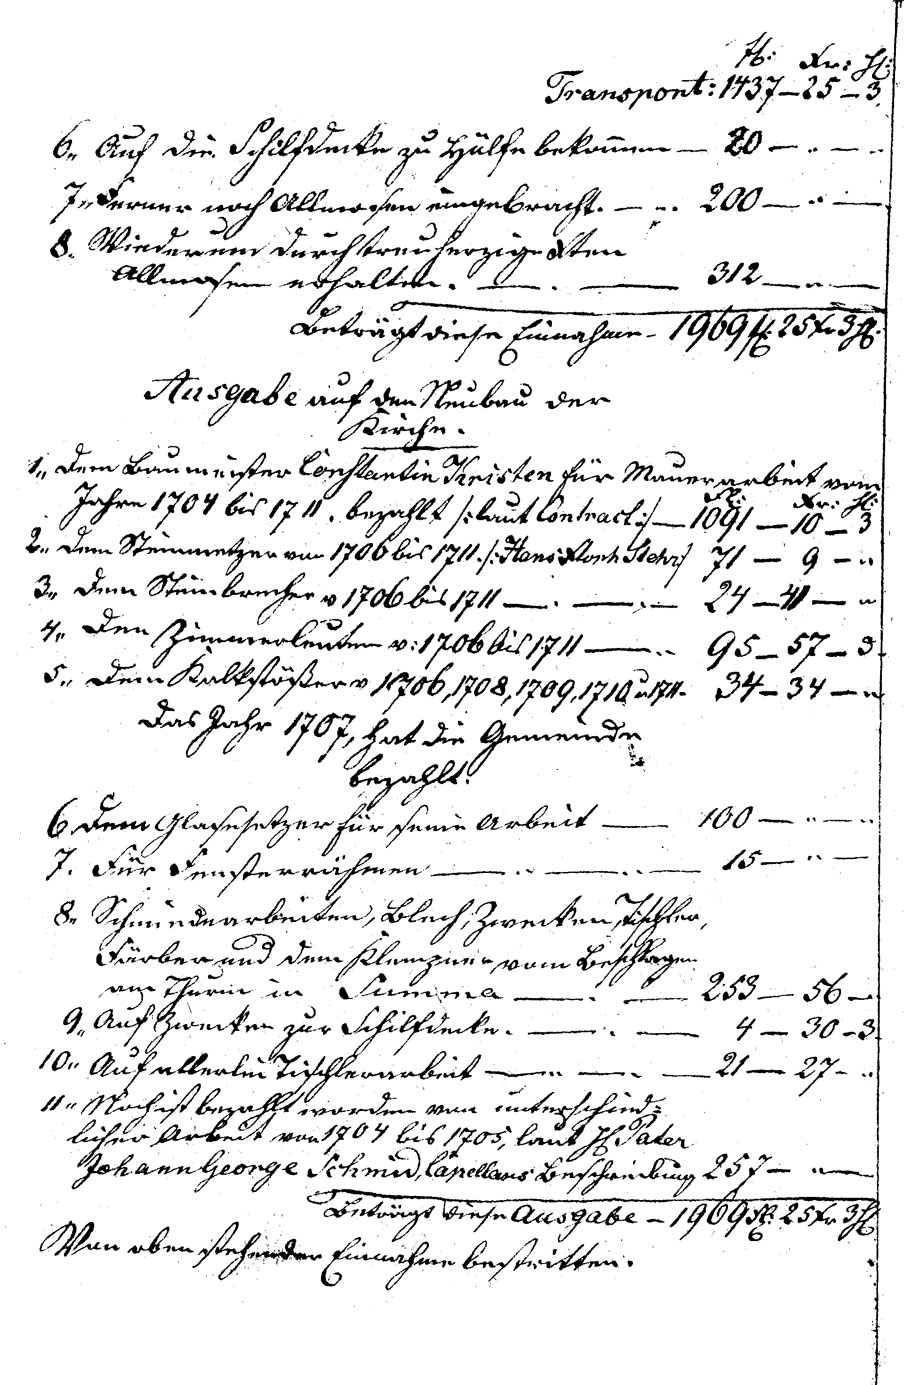 fl: Kr: hl:
Transport: 1437 — 25 — 3.
6„ Auf die Schilfdecke zu Hülfe bekommen — 20 — „ — „
7„ Ferner noch Allmosen eingebracht. — „. 200 — „ —
8. Wiederum durch treuherzige
Allmosen erhalten. — . — 312 — „ —
Beträgt diese Einnahme — 1969 fl: 25 Kr 3 hl:
Ausgabe auf den Neubau der
Kirche.
1„ Dem Baumeister Constantin Kristen für Mauerarbeit vom
fl: Kr: hl:
Jahre 1704 bis 1711. bezahlt /: laut Contract :/ — 1091 — 10 — 3
2„ Dem Steinmetzer von 1706 bis 1711. /: Hans Stehr :/ 71 — 9 — „
3„ Dem Steinbrecher v 1706 bis 1711 — . — . — 24 — 41 — „
4„ Den Zimmerleuten v: 1706 bis 1711 — „. 95 — 57 — 3.
5„ Dem Kalkstößer v 1706, 1708, 1709, 1710 u 1711. 34 — 34 — „
Das Jahr 1707, hat die Gemeinde
bezahlt:
6. Dem Glasesetzer für seine Arbeit — 100 — „ — „
7. Für Fensterrähmen — „. — „. — 15 — „ —
8„ Schmiedearbeiten, Blech, Zwecken, Tischler,
Färber und dem Klempner vom Beschlagen
am Thurm in Summa — . — 253 — 56 — „
9„ Auf Zwecken zur Schilfdecke. — „. — 4 — 30 — 3.
10„ Auf allerlei Tischlerarbeit — „ — „. — 21 — 27 — „
11„ Noch ist bezahlt worden von unterschied=
licher Arbeit von 1704 bis 1705, laut H Pater
Johann George Schmid, Capellans Beschreibung 257 — „ —
Beträgt diese Ausgabe — 1969 fl: 25 Kr 3 hl
Von oben stehender Einnahme bestritten.